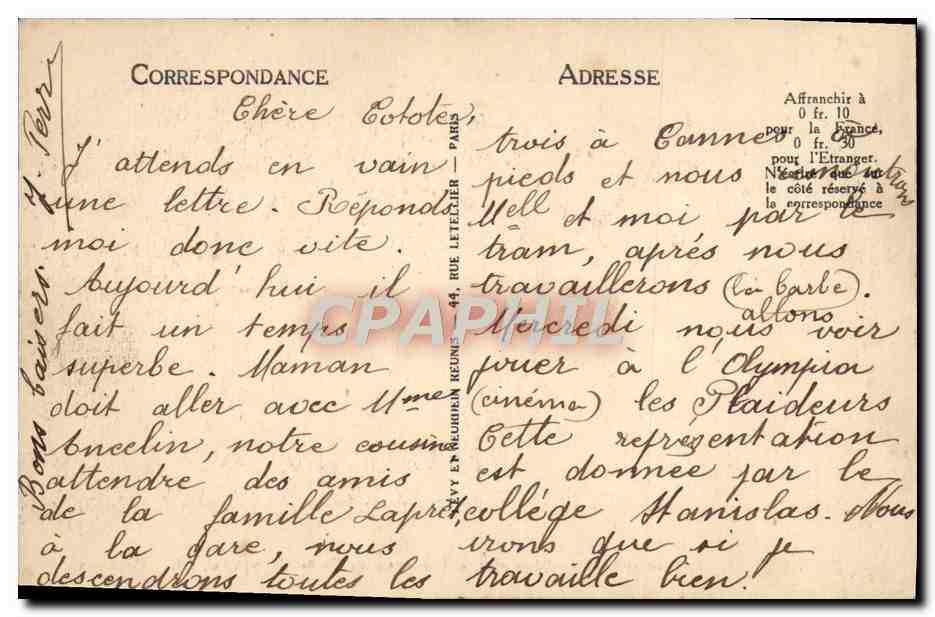 CORRESPONDANCE
Chère Cototé,
J'attends en vain
une lettre. Réponds
moi donc vite.
Aujourd'hui il
fait un temps
superbe. Maman
doit aller avec Mme
Ancelin, notre cousine
attendre des amis
de la famille Lapret,
à la gare, nous
descendrons toutes les
ADRESSE
trois à Cannes à
pieds et nous remontrons
Mell et moi par le
tram, aprés nous
travaillerons (la barbe).
Mercredi nous allons voir
jouer à l'Olympia
(cinéma) les Plaideurs
Cette représentation
est donnée par le
collége Stanislas. Nous
irons que si je
travaille bien.
Bons baisers.
Affranchir à
0 fr. 10
pour la France,
0 fr. 30
pour l'Etranger.
N'écrire que sur
le côté réservé à
la correspondance
LÉVY ET NEURDEIN REUNIS 44, RUE LETELLIER — PARIS
CPAPHIL